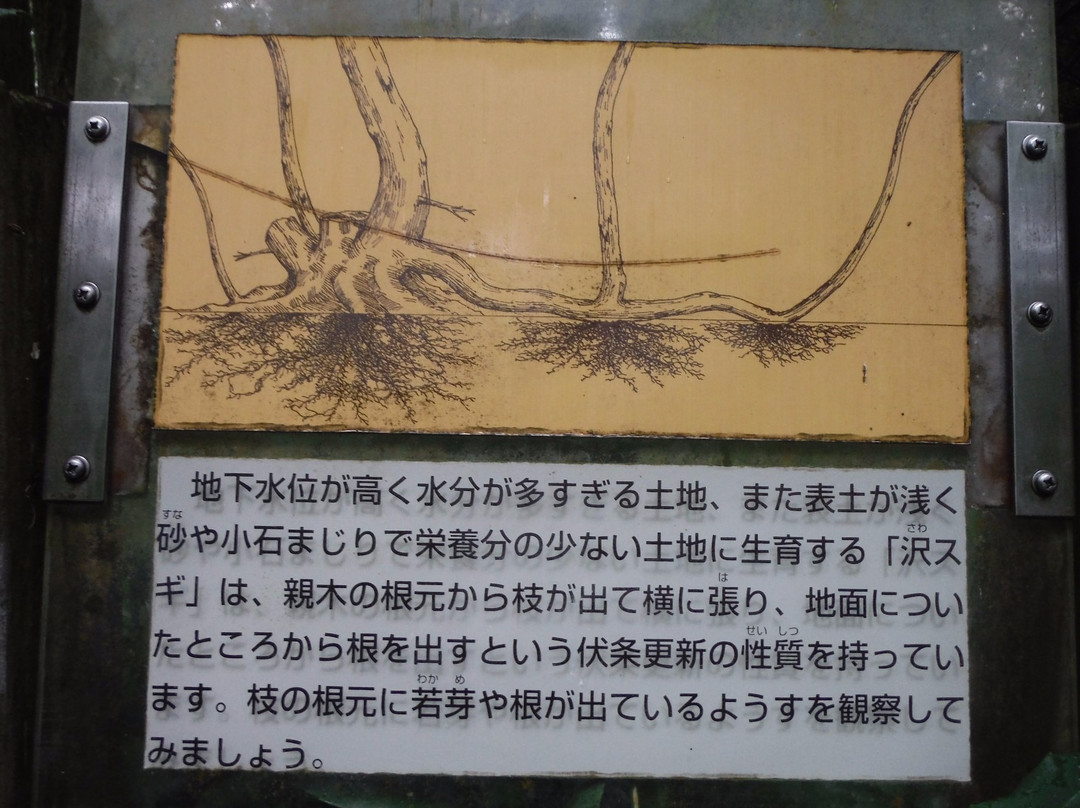 地下水位が高く水分が多すぎる土地、また表土が浅く
すな さわ
砂や小石まじりで栄養分の少ない土地に生育する「沢ス
は
ギ」は、親木の根元から枝が出て横に張り、地面につい
せい しつ
たところから根を出すという伏条更新の性質を持ってい
わか め
ます。枝の根元に若芽や根が出ているようすを観察して
みましょう。